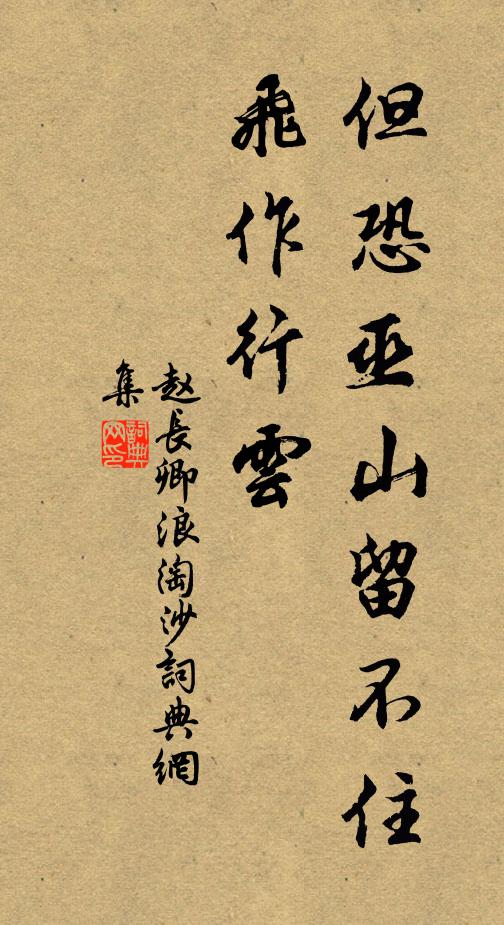 但恐巫山留不住
飛作行雲
赵長卿浪淘沙詞典網
集
詞典网印